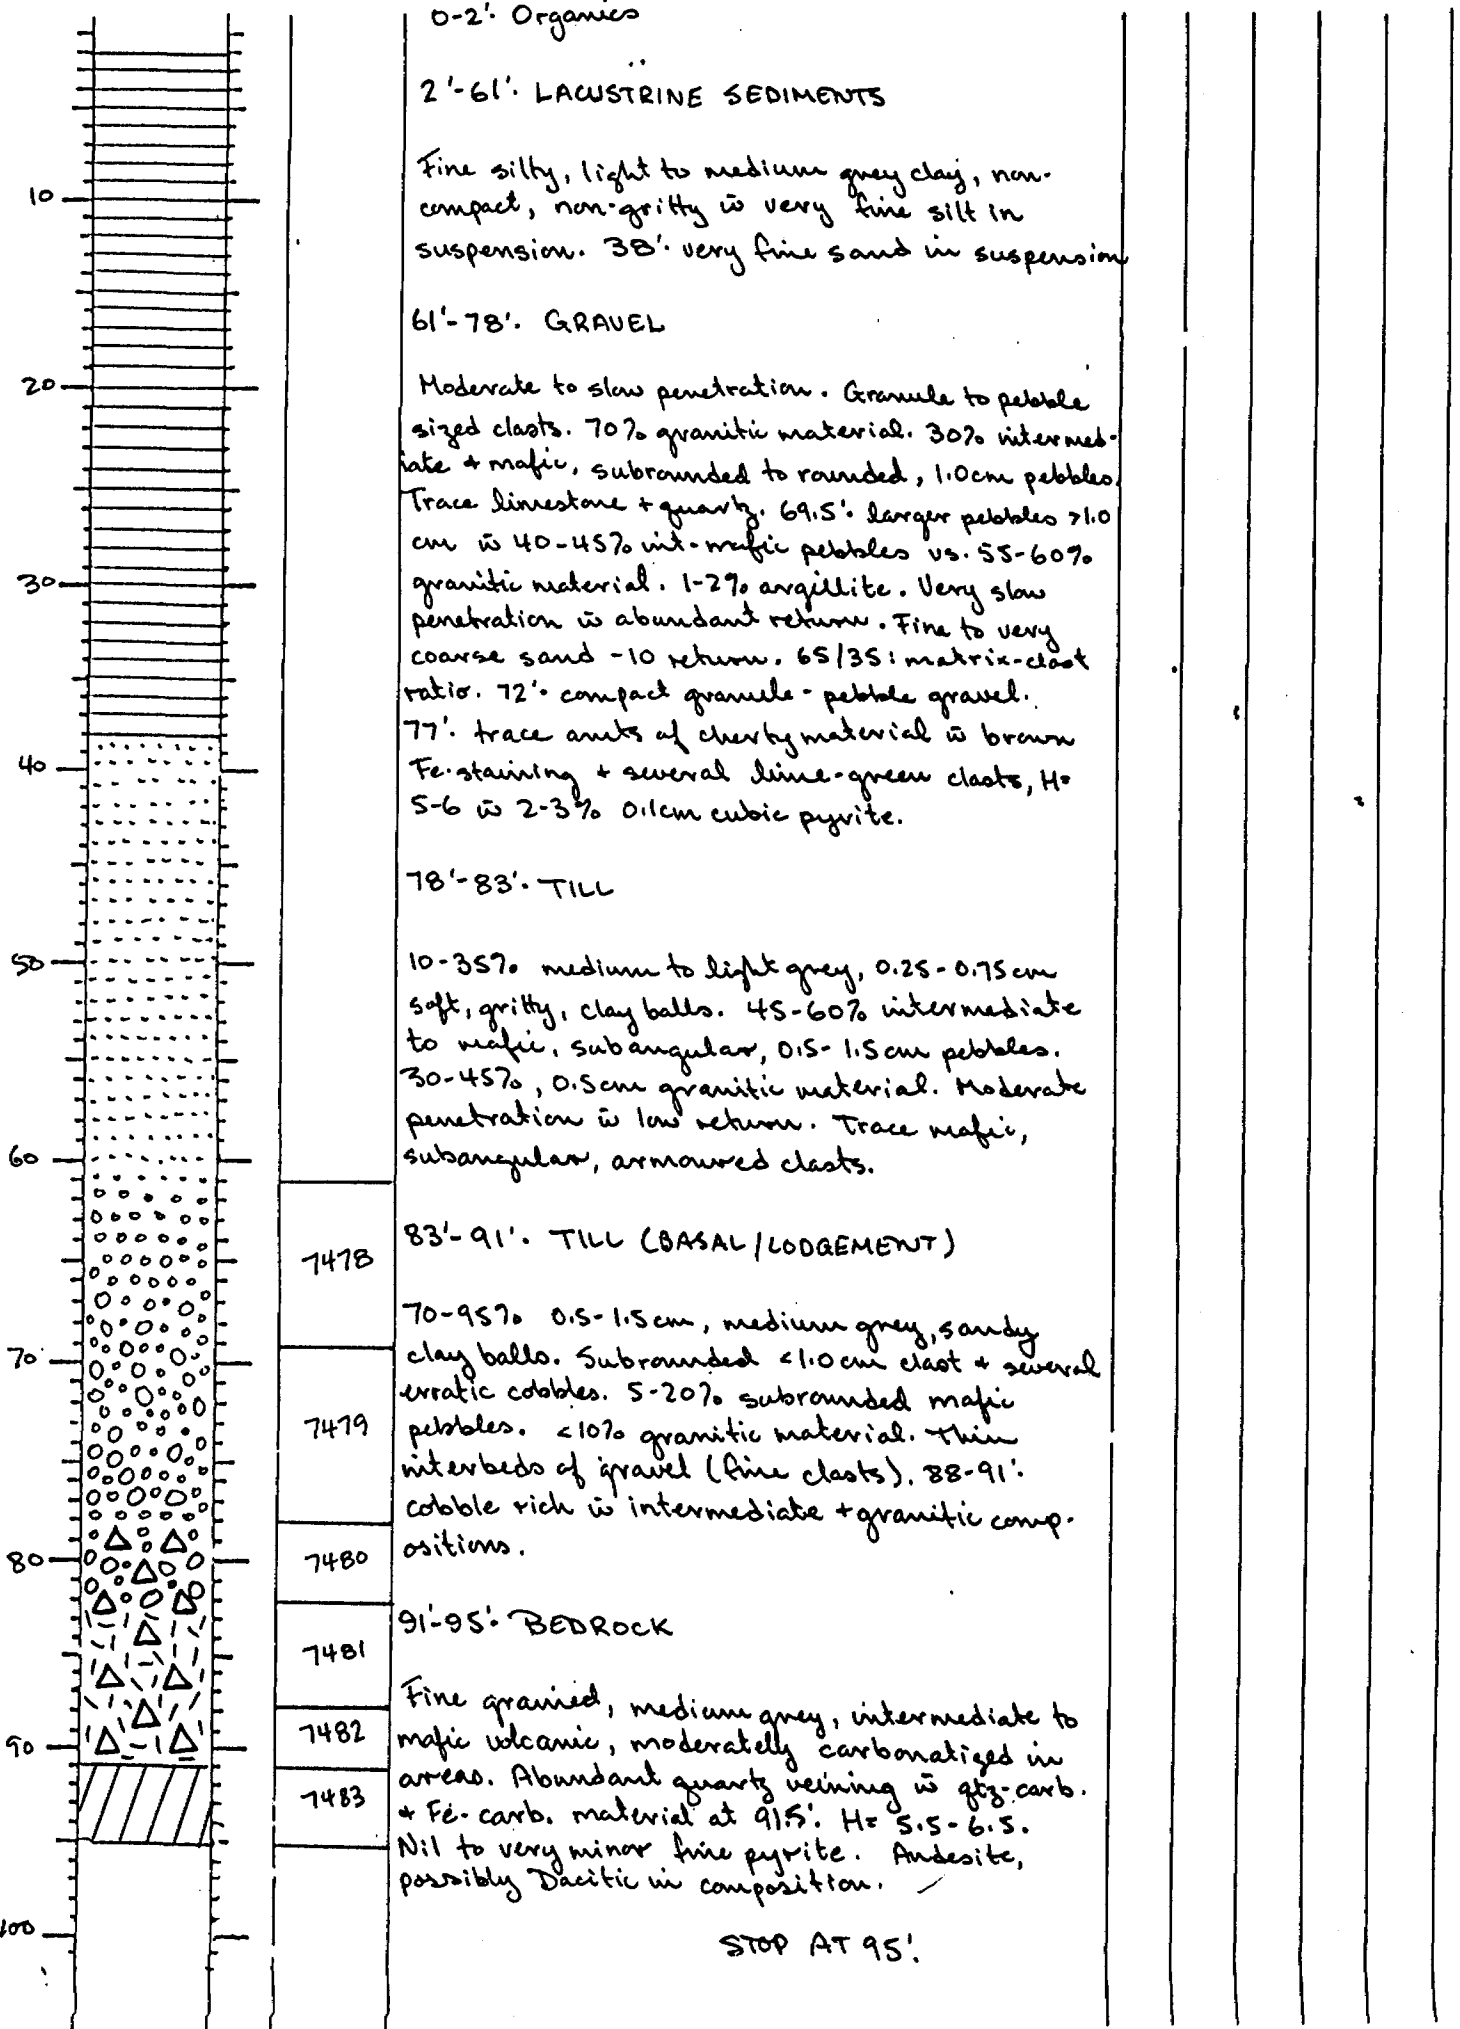 0-2'. Organics
2'-61'. LACUSTRINE SEDIMENTS
Fine silty, light to medium grey clay, non-
compact, non-gritty w̄ very fine silt in
suspension. 38'. very fine sand in suspension
61'-78'. GRAVEL
Moderate to slow penetration. Granule to pebble
sized clasts. 70% granitic material. 30% intermed-
iate + mafic, subrounded to rounded, 1.0cm pebbles.
Trace limestone + quartz. 69.5'. larger pebbles >1.0
cm w̄ 40-45% int-mafic pebbles vs. 55-60%
granitic material. 1-2% argillite. Very slow
penetration w̄ abundant return. Fine to very
coarse sand -10 return. 65/35: matrix-clast
ratio. 72'. compact granule-pebble gravel.
77'. trace amts of cherty material w̄ brown
Fe-staining + several lime-green clasts, H=
5-6 w̄ 2-3% 0.1cm cubic pyrite.
78'-83'. TILL
10-35% medium to light grey, 0.25-0.75cm
soft, gritty, clay balls. 45-60% intermediate
to mafic, subangular, 0.5-1.5cm pebbles.
30-45%, 0.5cm granitic material. Moderate
penetration w̄ low return. Trace mafic,
subangular, armoured clasts.
83'-91'. TILL (BASAL/LODGEMENT)
70-95% 0.5-1.5cm, medium grey, sandy
clay balls. Subrounded <1.0cm clast + several
erratic cobbles. 5-20% subrounded mafic
pebbles. <10% granitic material. Thin
interbeds of gravel (fine clasts). 88-91'.
cobble rich w̄ intermediate + granitic comp-
ositions.
91'-95'. BEDROCK
Fine grained, medium grey, intermediate to
mafic volcanic, moderately carbonatized in
areas. Abundant quartz veining w̄ qtz-carb.
+ Fe-carb. material at 91.5'. H= 5.5-6.5.
Nil to very minor fine pyrite. Andesite,
possibly Dacitic in composition.
STOP AT 95'.
10
20
30
40
50
60
70
80
90
100
7478
7479
7480
7481
7482
7483